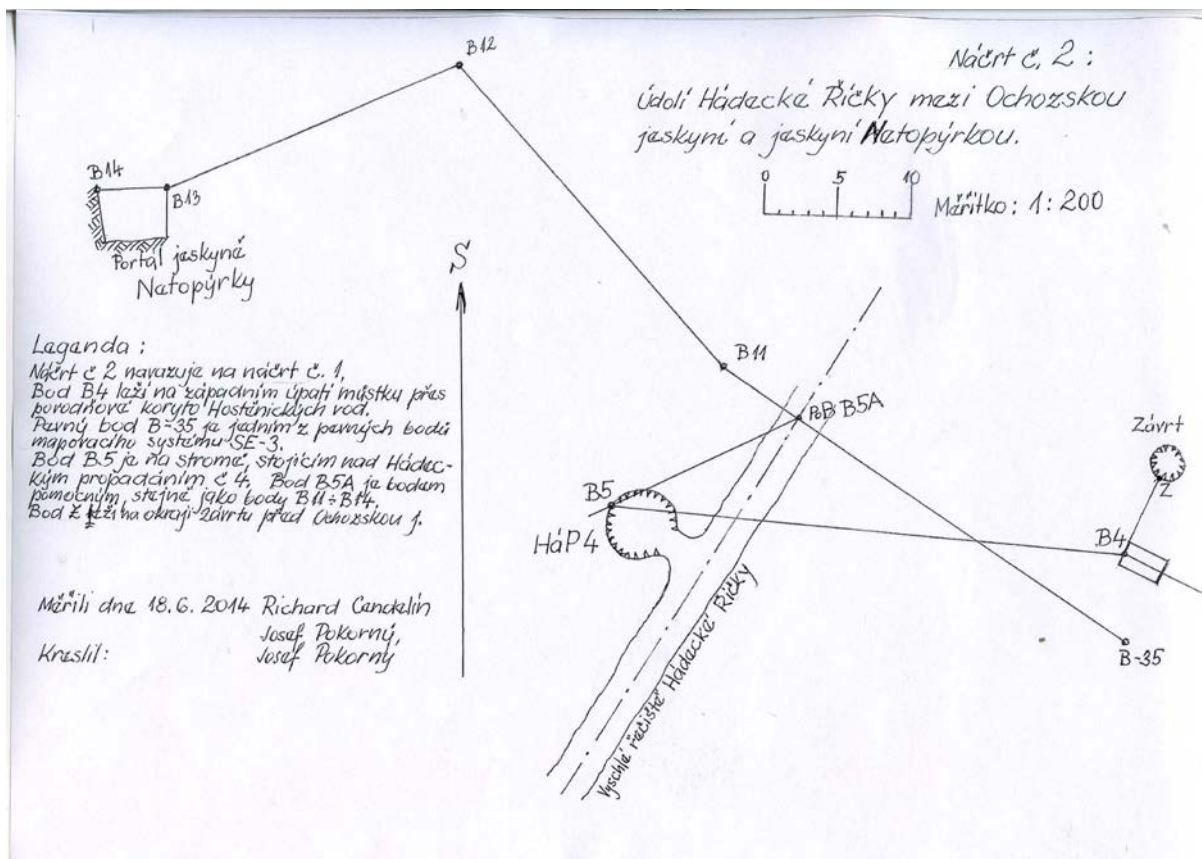 Náčrt č. 2 :
Údolí Hádecké Říčky mezi Ochozskou
jeskyní a jeskyní Netopýrkou.
0 5 10
Měřítko: 1:200
B12
B14
B13
Portál jeskyně
Netopýrky
S
B11
B5A
Závrt
Z
B5
HáP4
B4
B-35
Vyschlé řečiště Hádecké Říčky
Legenda :
Náčrt č 2 navazuje na náčrt č. 1.
Bod B4 leží na západním úpatí můstku přes
povodňové koryto Hostěnických vod.
Pevný bod B-35 je jedním z pevných bodů
mapovacího systému SE-3.
Bod B5 je na stromě, stojícím nad Hádec-
kým propadáním č 4. Bod B5A je bodem
pomocným, stejně jako body B11÷B14.
Bod Z leží na okraji závrtu před Ochozskou j.
Měřili dne 18.6. 2014 Richard Cendelín
Josef Pokorný,
Kreslil: Josef Pokorný